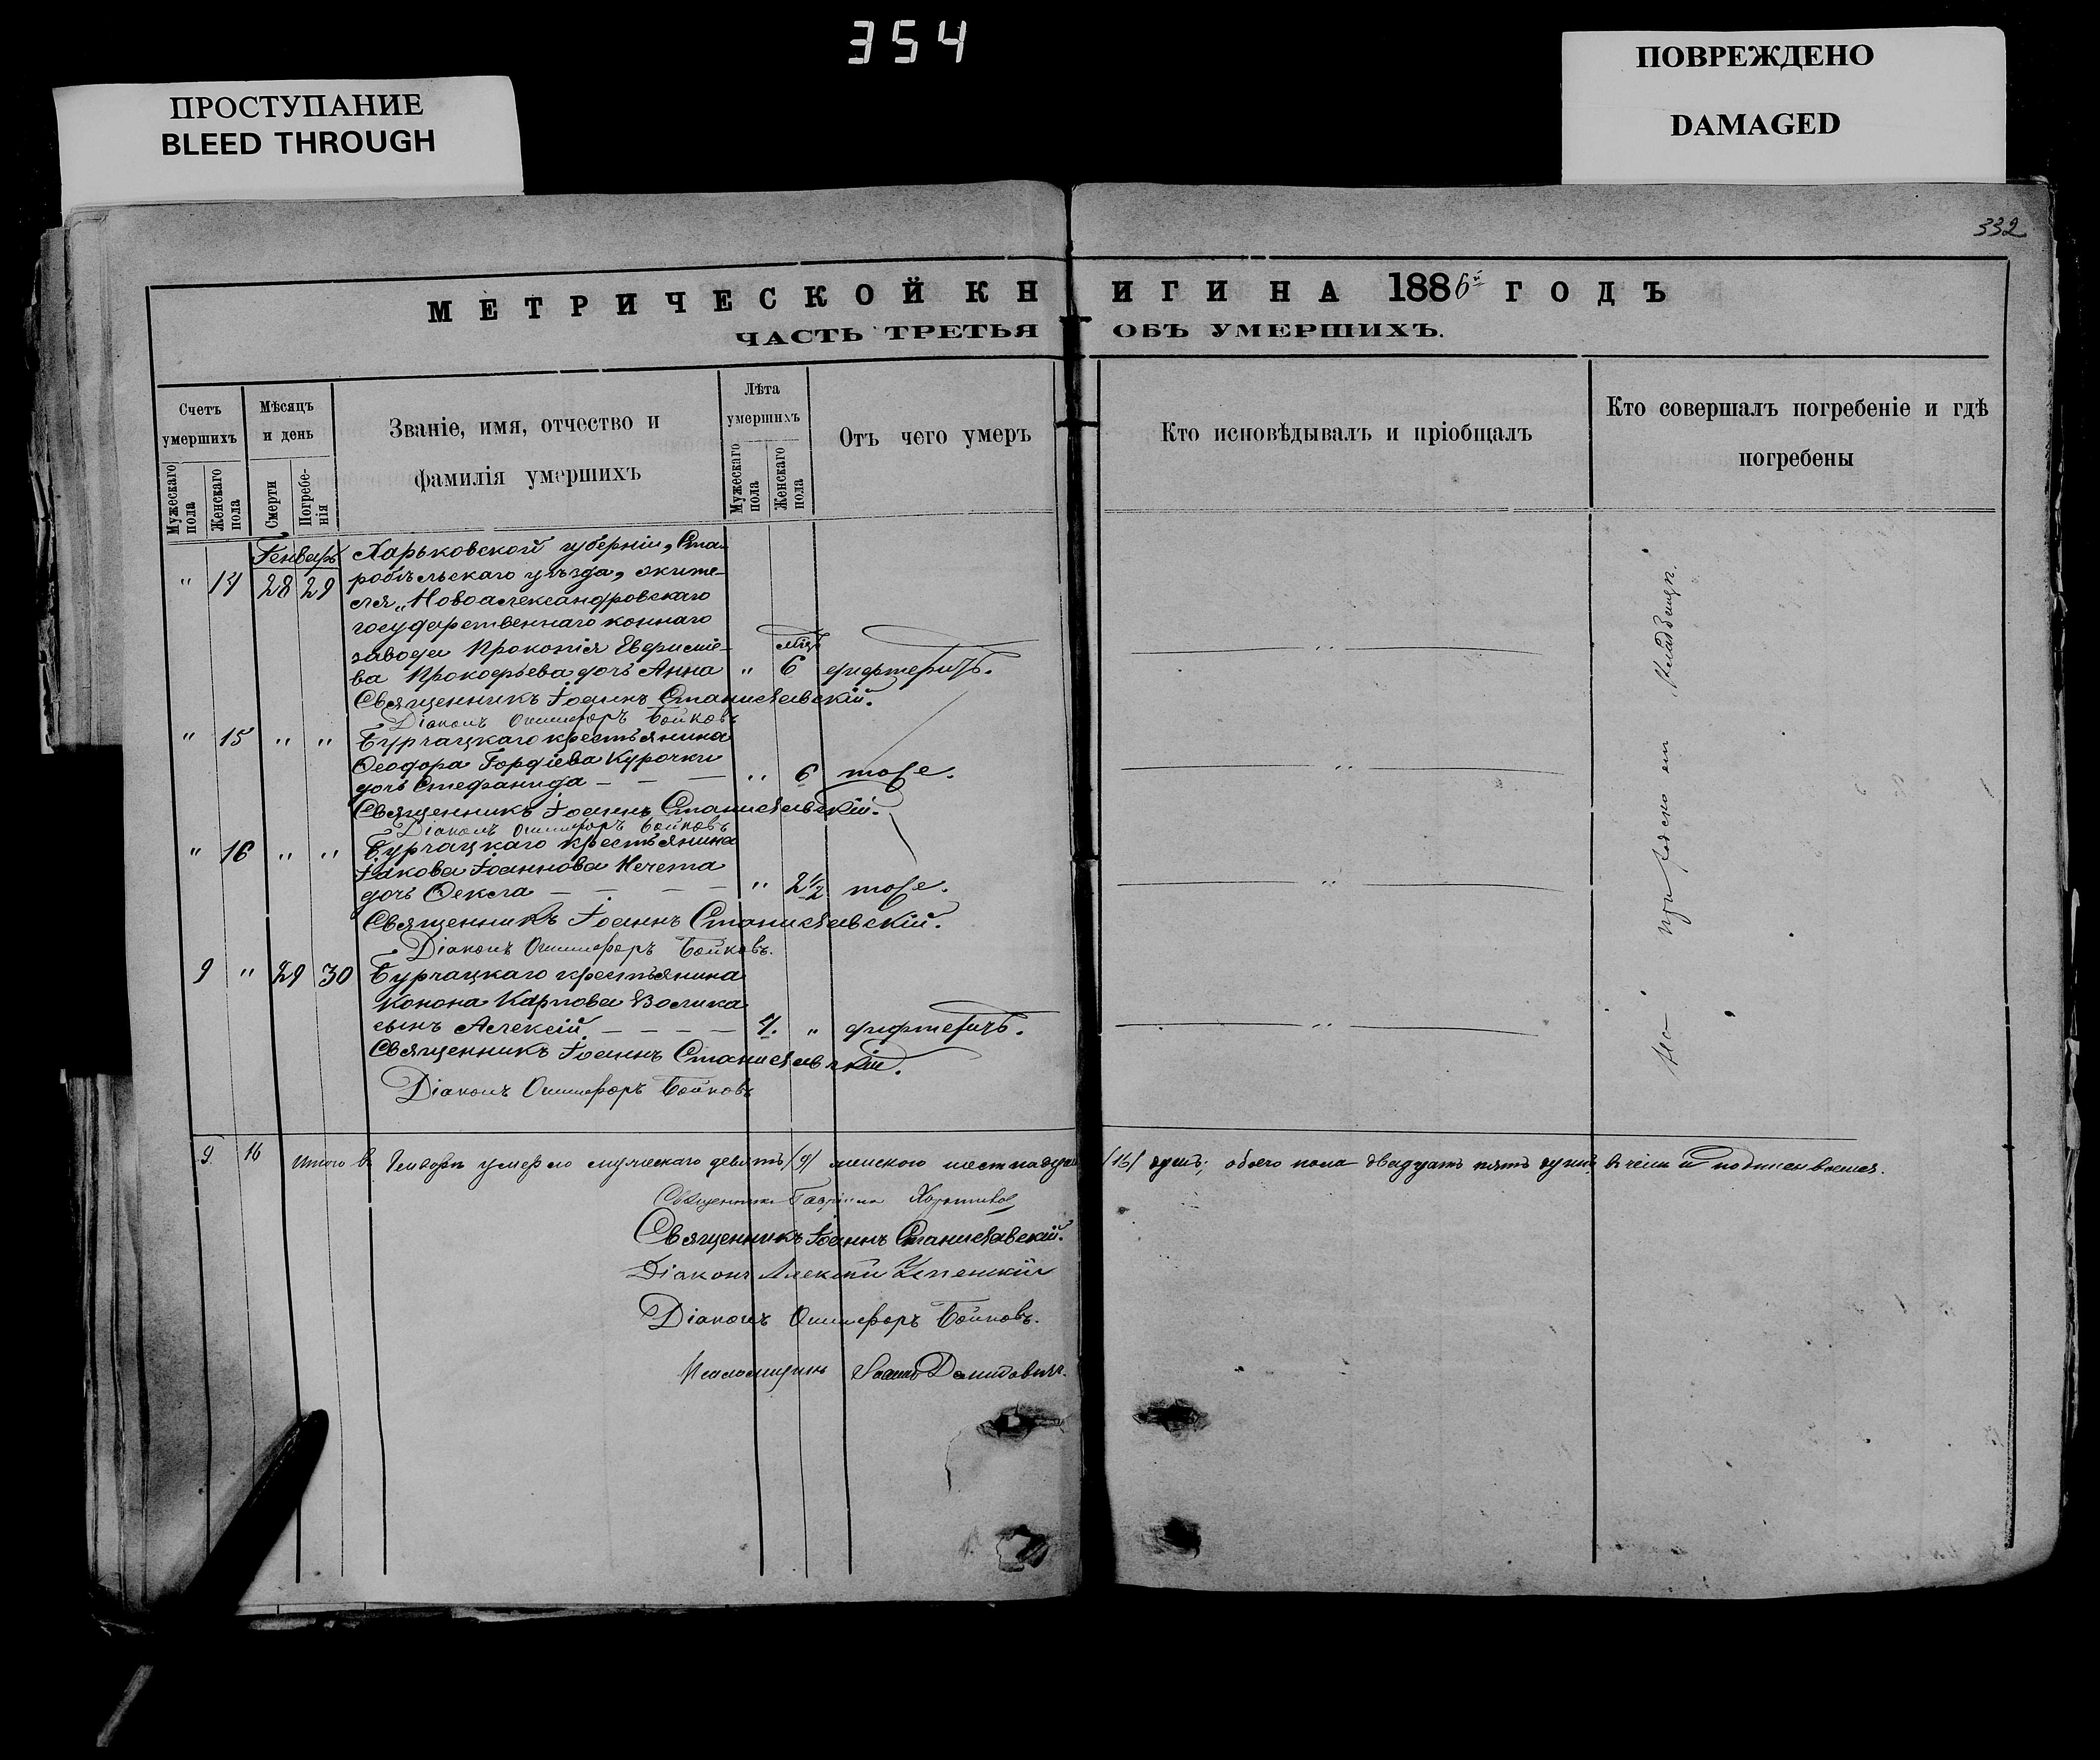 354
ПРОСТУПАНИЕ
BLEED THROUGH
ПОВРЕЖДЕНО
DAMAGED
332
МЕТРИЧЕСКОЙ КНИГИ НА 1886й ГОДЪ
ЧАСТЬ ТРЕТЬЯ ОБЪ УМЕРШИХЪ.
Счетъ умершихъ
Мужескаго пола
Женскаго пола
Мѣсяцъ и день
Смерти
Погребенія
Званіе, имя, отчество и
фамилія умершихъ
Лѣта умершихъ
Мужескаго пола
Женскаго пола
Отъ чего умеръ
Кто исповѣдывалъ и пріобщалъ
Кто совершалъ погребеніе и гдѣ
погребены
Генварь Харьковской губерніи, Ста-
" 14 28 29 робѣльскаго уѣзда, жите-
ля "Новоалександровскаго
государственнаго коннаго
завода Прокопія
ва Прокофьева дочь Анна " 6 дифтеритъ. "
Священникъ Іоаннъ Станиславскій.
Діаконъ Онисифоръ Бойковъ
" 15 " " Бурчацкаго крестьянина
Ѳеодора Гордіева Курочки
дочь Стефанида — — — " 6 тоже. "
Священникъ Іоаннъ Станиславскій.
Діаконъ Онисифоръ Бойковъ
" 16 " " Бурчацкаго крестьянина
Іакова Іоаннова Нечета
дочь Ѳекла — — — — " 2 1/2 тоже. "
Священникъ Іоаннъ Станиславскій.
Діаконъ Онисифоръ Бойковъ.
9 " 29 30 Бурчацкаго крестьянина
Конона Карпова Волика
сынъ Алексій — — — — 4. " дифтеритъ. "
Священникъ Іоаннъ Станиславскій.
Діаконъ Онисифоръ Бойковъ
На приходскомъ кладбищѣ.
9. 16 Итого въ Генварѣ умерло мужескаго девять /9/ женскаго шестнадцать /16/ душъ; обоего пола двадцать пять душъ въ чемъ и подписываемся.
Священникъ Гавріилъ
Священникъ Іоаннъ Станиславскій.
Діаконъ Алексій Успенскій
Діаконъ Онисифоръ Бойковъ.
Псаломщикъ Демидовичъ.